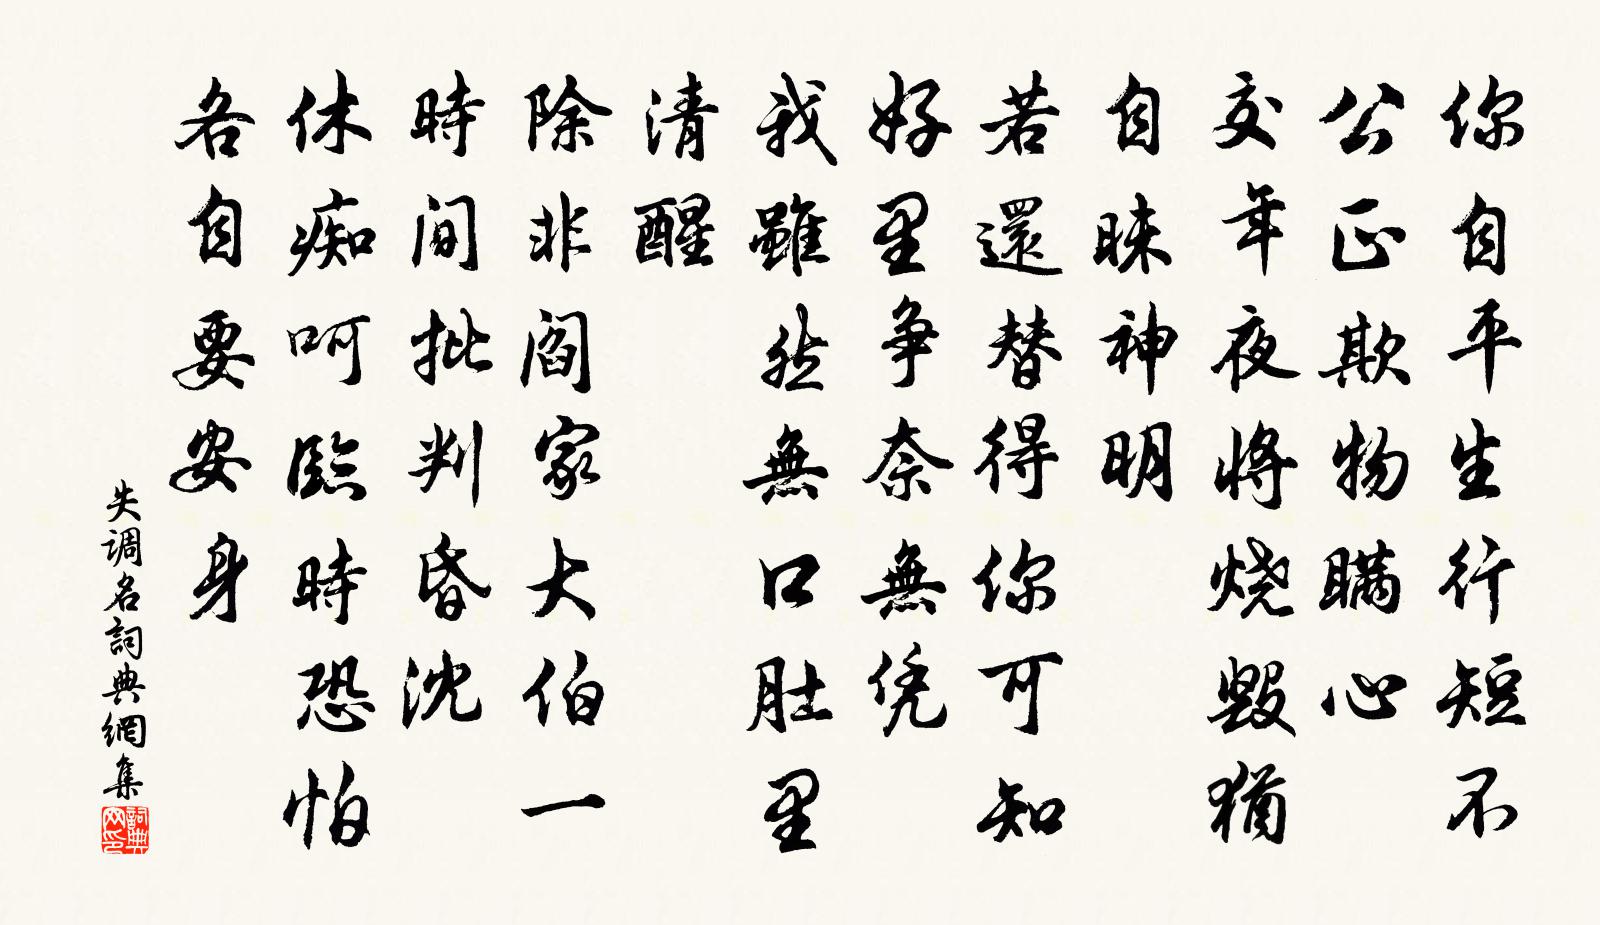 你自平生行短不
公正欺物瞞心
交年夜將燒毀猶
自昧神明
若還替得你可知
好里爭奈無凭
我雖然無口肚里
清醒
除非閻家大伯一
時間批判昏沈
休痴呵臨時恐怕
各自要安身
失调名詞典網集
詞典网印